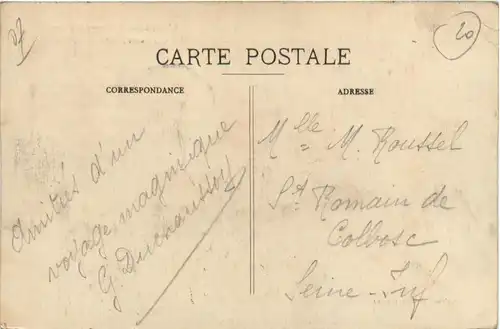 20
CARTE POSTALE
CORRESPONDANCE
ADRESSE
Amitiés d'un
voyage magnifique
G
Mlle M. Roussel
St Romain de
Colbosc
Seine-Inf